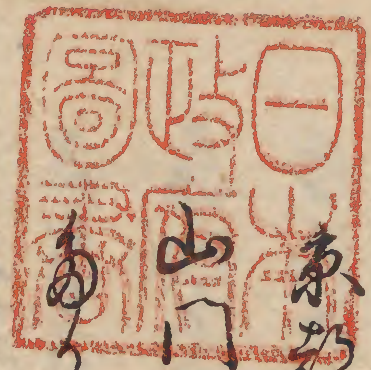 日本
政府
圖書
京都
山門